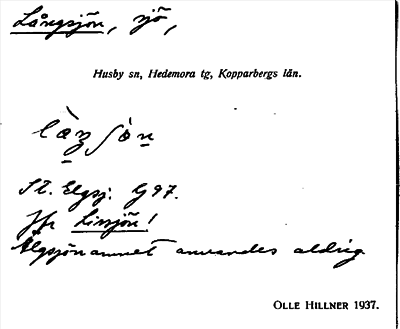 Långsjön, sjö,
Husby sn, Hedemora tg, Kopparbergs län.
St. Elgsj. G 97.
Jfr Linsjön!
Älgsjönamnet användes aldrig
OLLE HILLNER 1937.